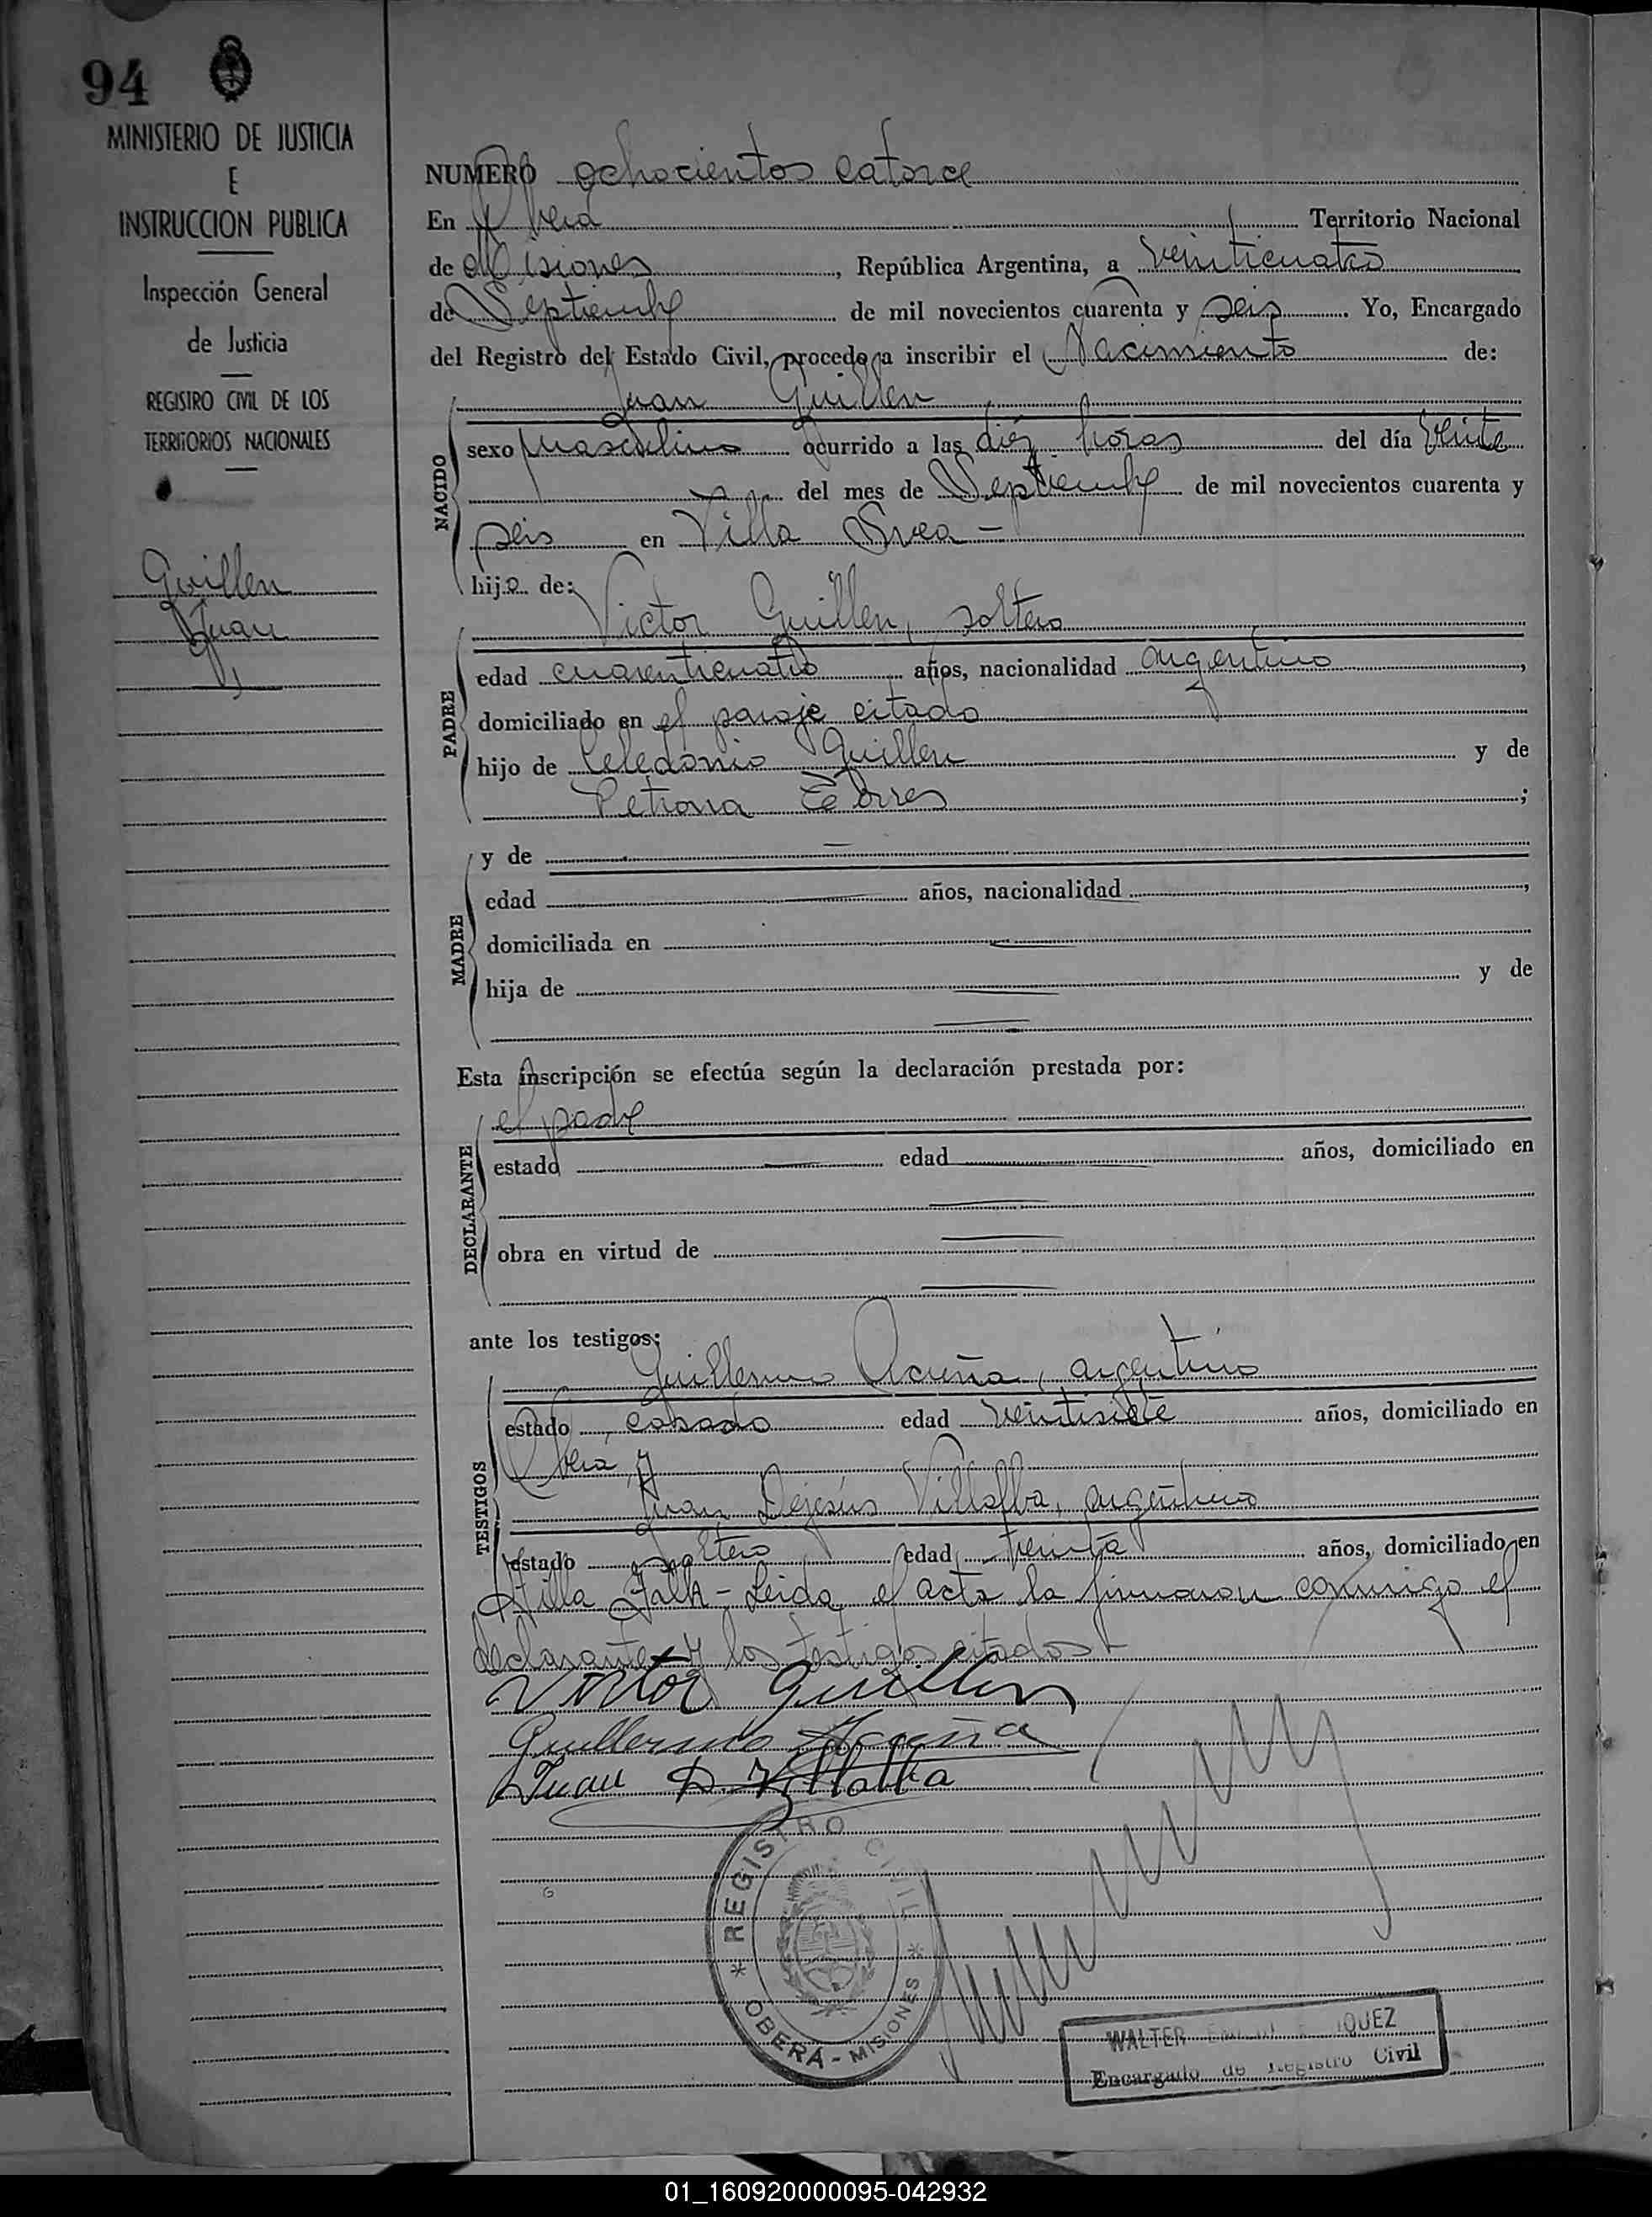 94
MINISTERIO DE JUSTICIA
E
INSTRUCCION PUBLICA
Inspección General
de Justicia
REGISTRO CIVIL DE LOS
TERRITORIOS NACIONALES
Guillen
Juan
NUMERO ochocientos catorce
En Oberá Territorio Nacional
de Misiones, República Argentina, a veinticuatro
de Septiembre de mil novecientos cuarenta y seis. Yo, Encargado
del Registro del Estado Civil, procedo a inscribir el Nacimiento de:
Juan Guillen
NACIDO
sexo masculino ocurrido a las diéz horas del día veinte
del mes de Septiembre de mil novecientos cuarenta y
seis en Villa Svea -
hijo de:
Victor Guillen, soltero
PADRE
edad cuarenticuatro años, nacionalidad argentino,
domiciliado en el paraje citado
hijo de Celedonio Guillen y de
Petrona Torres;
MADRE
y de
edad años, nacionalidad,
domiciliada en
hija de y de
Esta inscripción se efectúa según la declaración prestada por:
DECLARANTE
el padre
estado edad años, domiciliado en
obra en virtud de
ante los testigos:
TESTIGOS
Guillermo Acuña, argentino
estado casado edad veintisiete años, domiciliado en
Oberá, y
Juan Dejesús Villalba, argentino
estado soltero edad treinta años, domiciliado en
Villa Falk - Leida el acta la firmaron conmigo el
declarante y los testigos citados -
Victor Guillen
Guillermo Acuña
Juan D. Villalba
REGISTRO CIVIL
OBERÁ - MISIONES
WALTER
Encargado de Registro Civil
01_160920000095-042932